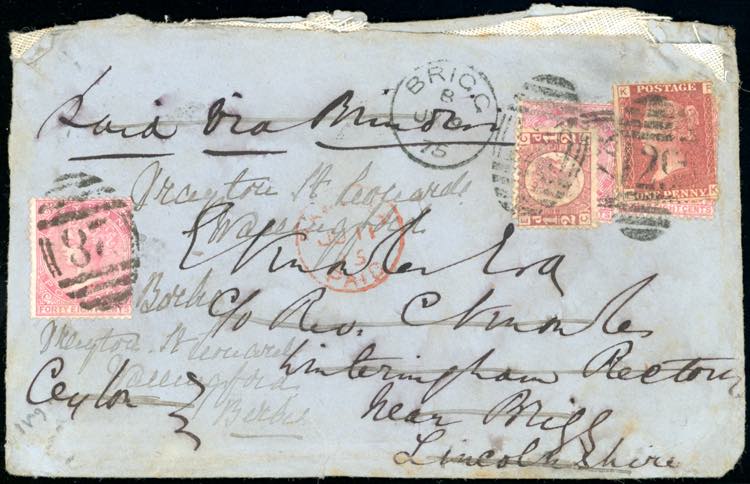 BRIGG
8
JY
75
Paid Via Brindisi
POSTAGE
ONE PENNY
K
K
Drayton St Leonards
Wallingford
PAID
Esq
c/o Rev.
Winteringham Rectory
near Brigg
Lincolnshire
Ceylon
Berks
Drayton St Leonard
Wallingford
Berks
FORTY EIGHT CENTS